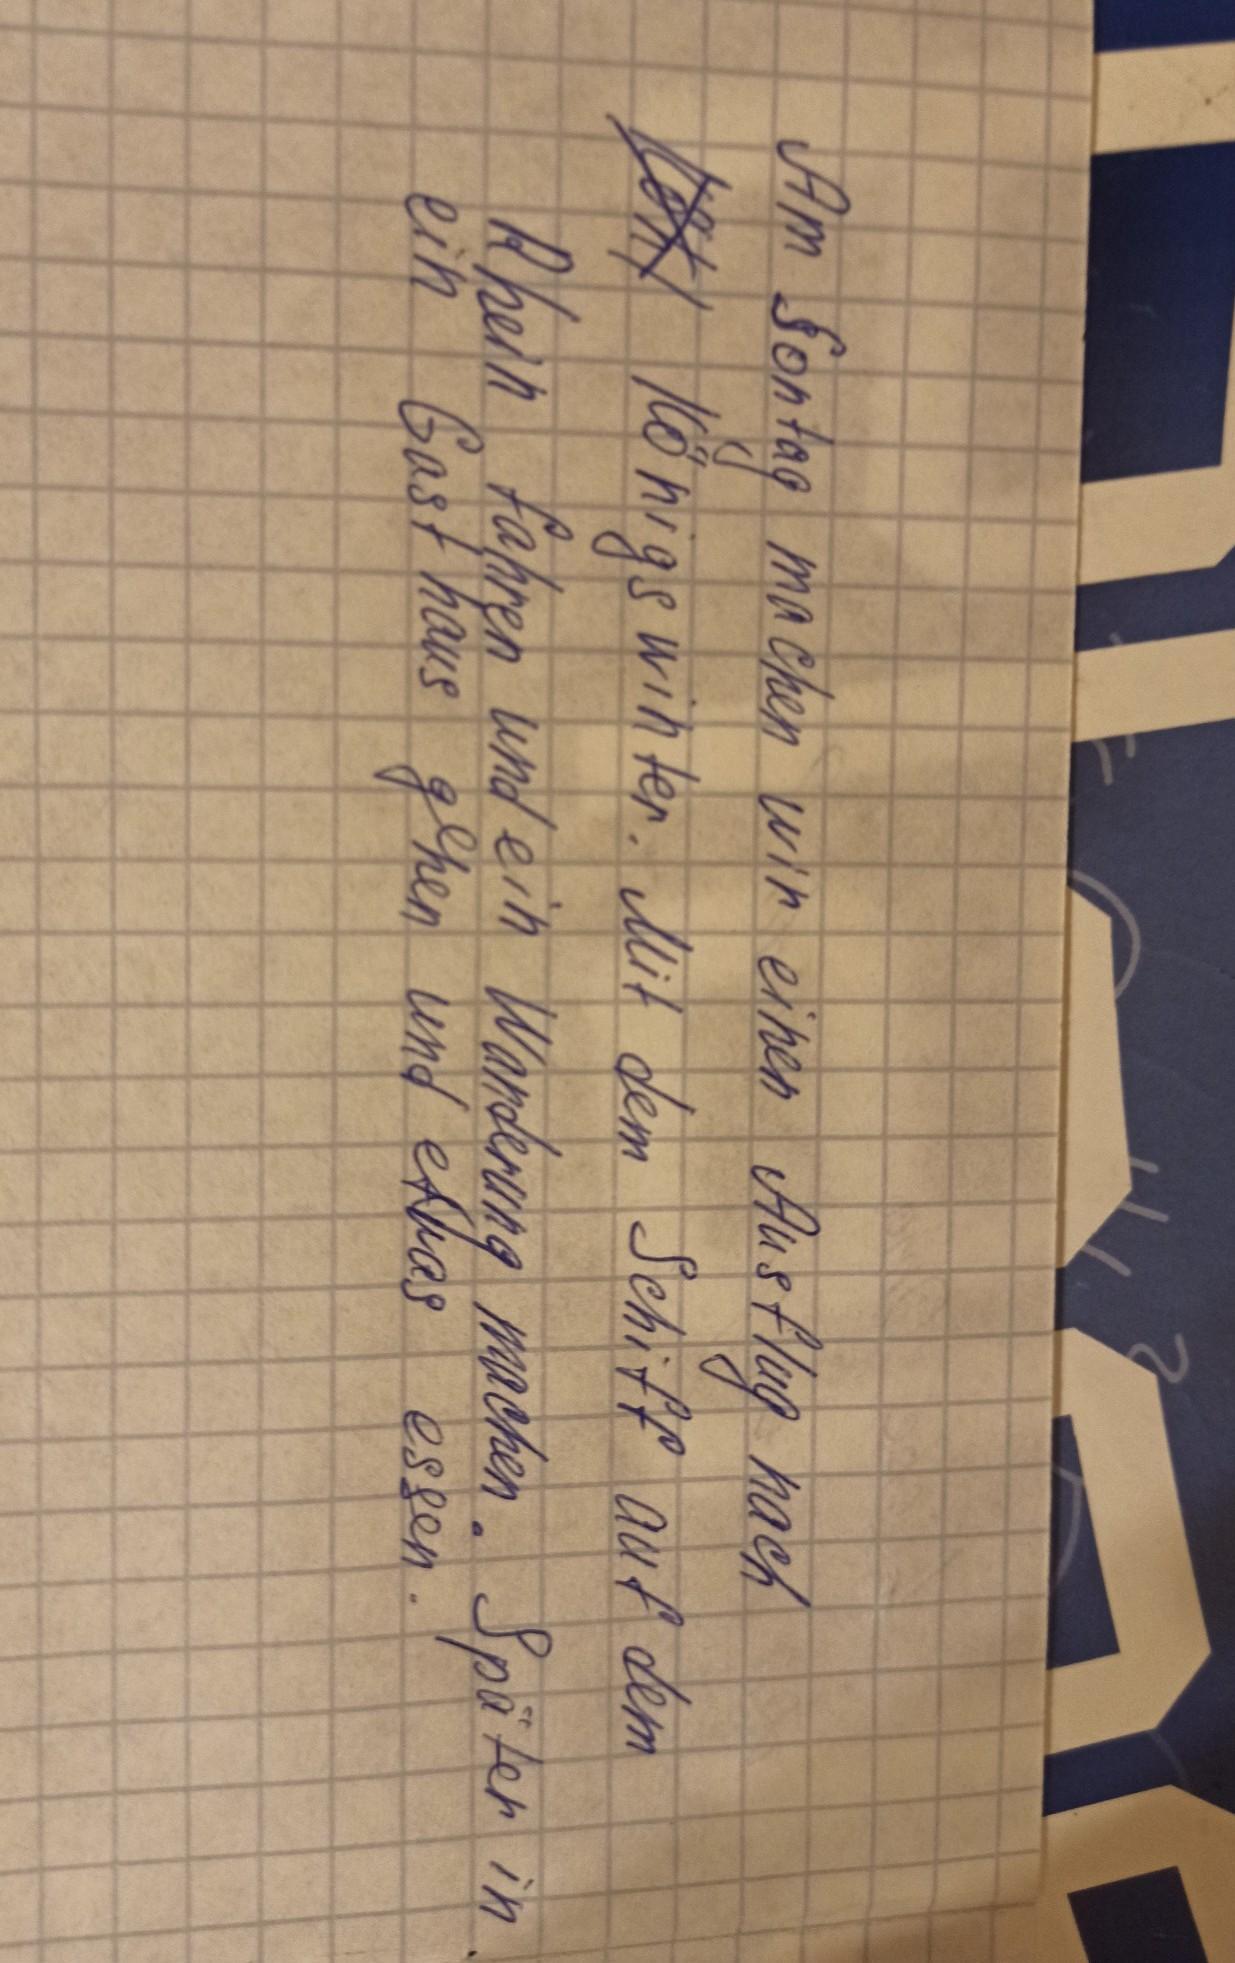 Am Sontag machen wir einen Ausflug nach
Königswinter. Mit dem Schiff auf dem
Rhein fahren und ein Wanderung machen. Später in
ein Gasthaus gehen und etwas essen.